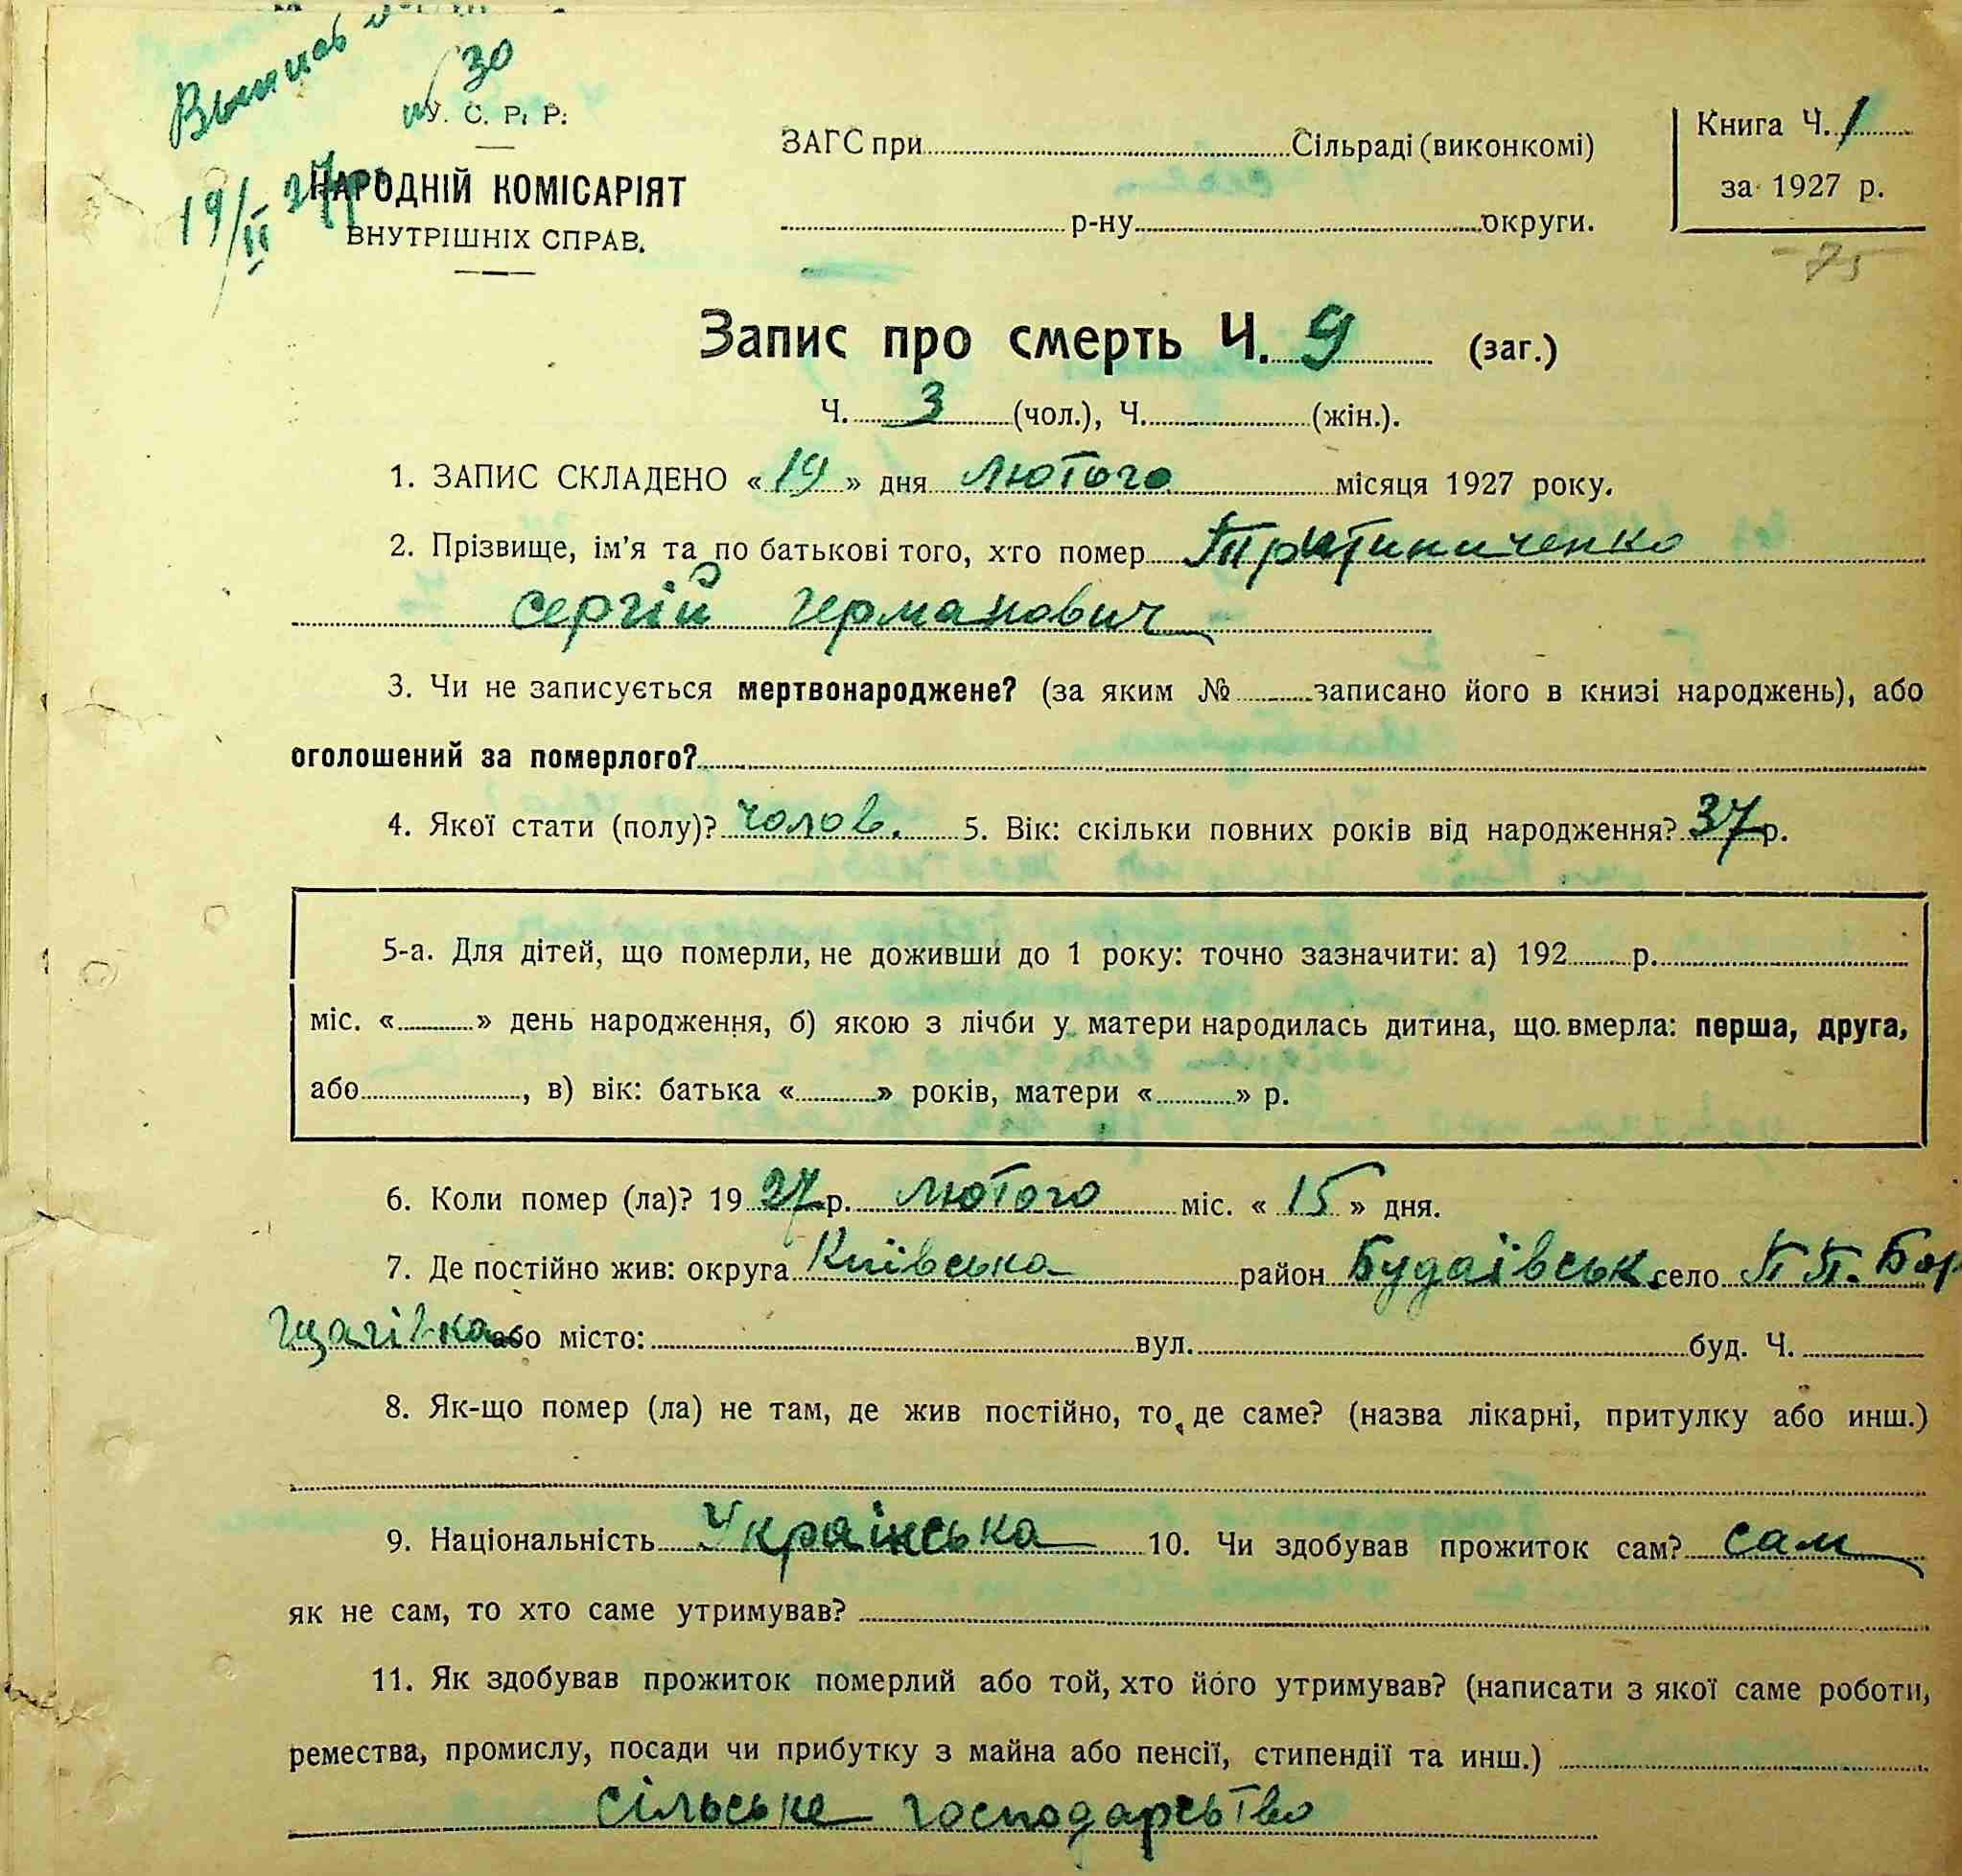 30
У. С. Р. Р.
НАРОДНІЙ КОМІСАРІЯТ
ВНУТРІШНІХ СПРАВ.
19/II 27р
ЗАГС при Сільраді (виконкомі)
р-ну округи.
Книга Ч. 1
за 1927 р.
75
Запис про смерть Ч. 9 (заг.)
Ч. 3 (чол.), Ч. (жін.).
1. ЗАПИС СКЛАДЕНО «19» дня Лютого місяця 1927 року.
2. Прізвище, ім'я та по батькові того, хто помер
Сергій Германович
3. Чи не записується мертвонароджене? (за яким № записано його в книзі народжень), або
оголошений за померлого?
4. Якої стати (полу)? чолов. 5. Вік: скільки повних років від народження? 37 р.
5-а. Для дітей, що померли, не доживши до 1 року: точно зазначити: а) 192 р.
міс. « » день народження, б) якою з лічби у матери народилась дитина, що вмерла: перша, друга,
або , в) вік: батька « » років, матери « » р.
6. Коли помер (ла)? 19 27 р. Лютого міс. « 15 » дня.
7. Де постійно жив: округа Київська район Будаївськ. село П П. Бор
щагівка або місто: вул. буд. Ч.
8. Як-що помер (ла) не там, де жив постійно, то де саме? (назва лікарні, притулку або инш.)
9. Національність Українська 10. Чи здобував прожиток сам? сам
як не сам, то хто саме утримував?
11. Як здобував прожиток померлий або той, хто його утримував? (написати з якої саме роботи,
ремества, промислу, посади чи прибутку з майна або пенсії, стипендії та инш.)
сільське господарьство